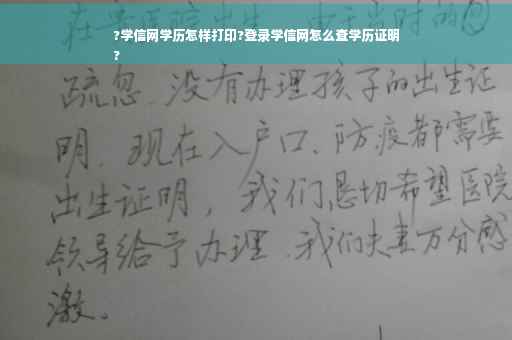 ?学信网学历怎样打印?登录学信网怎么查学历证明
?
在医院出生 由于当时的
疏忽、没有办理孩子的出生证
明、现在入户口、防疫都需要
出生证明，我们恳切希望医院
领导给予办理、我们夫妻万分感
激。